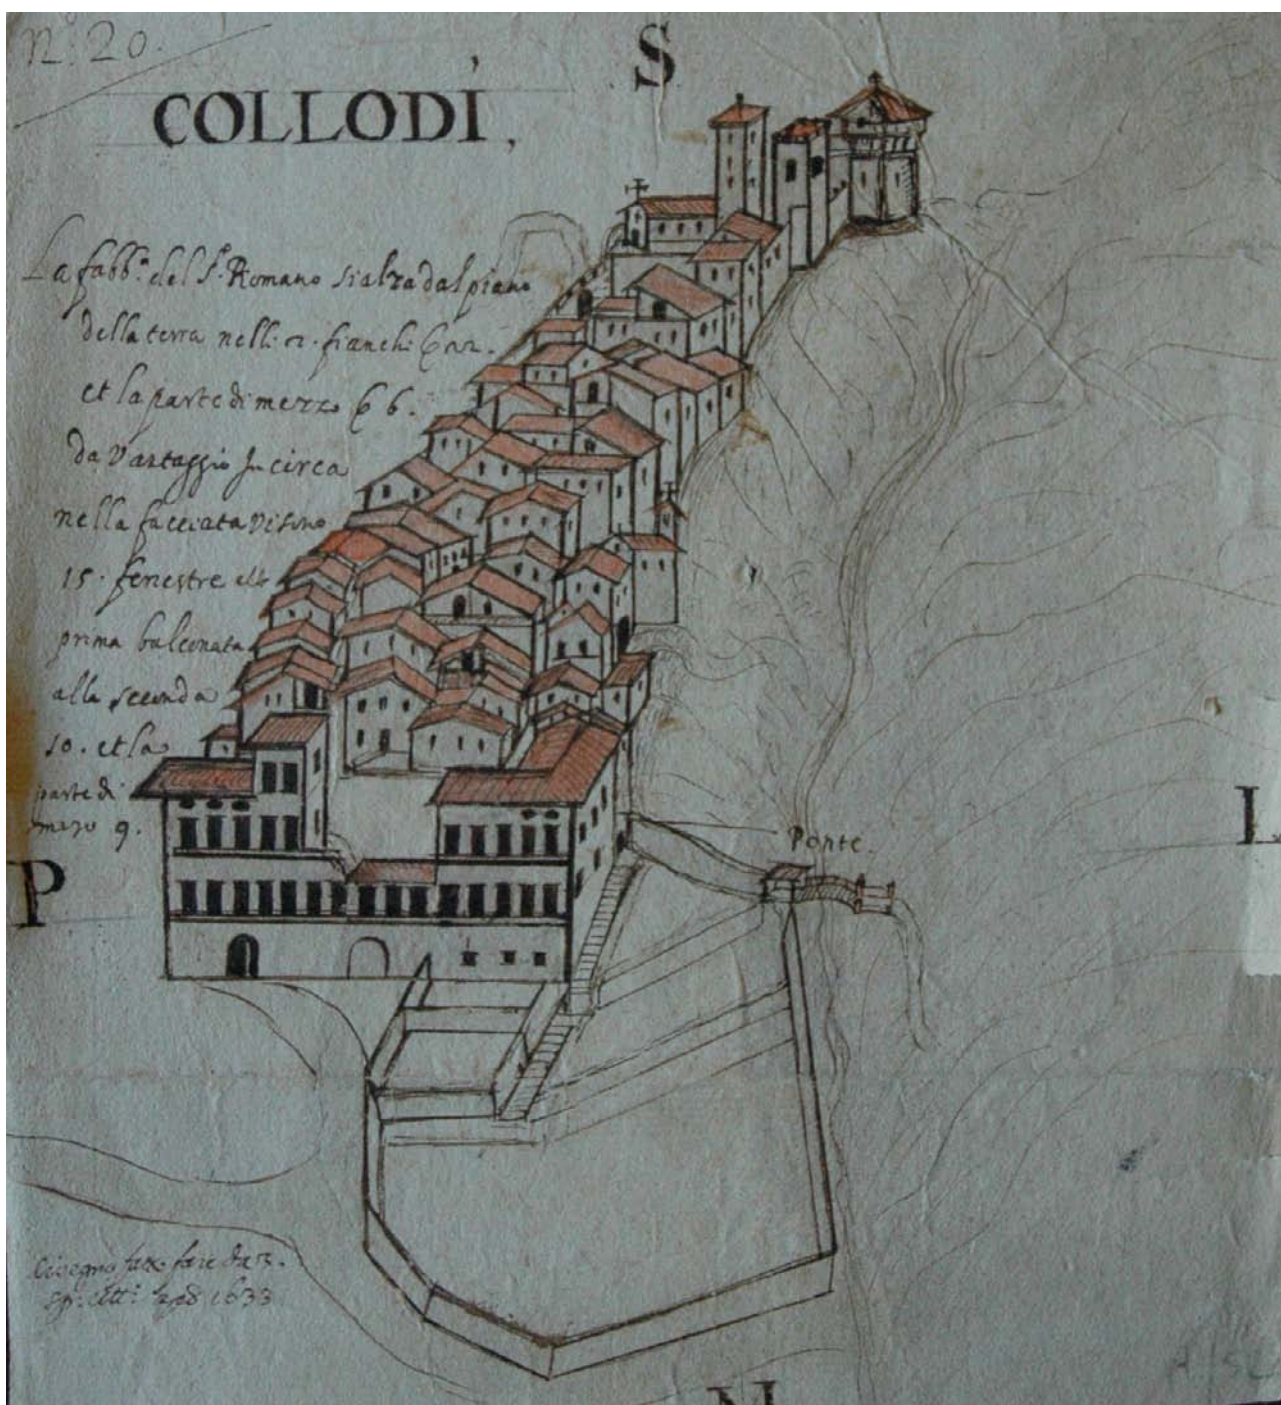 N.° 20.
S
COLLODI,
La fabb.ª del S.r Romano si alza dal piano
della terra nelli 2. fianchi
et la parte di mezzo 6.
da Vantaggio In circa
nella facciata vi sono
15. fenestre alla
prima balconata
alla seconda
10. et la
parte di
mezo 9.
Ponte.
L
P
fare da
1633
N